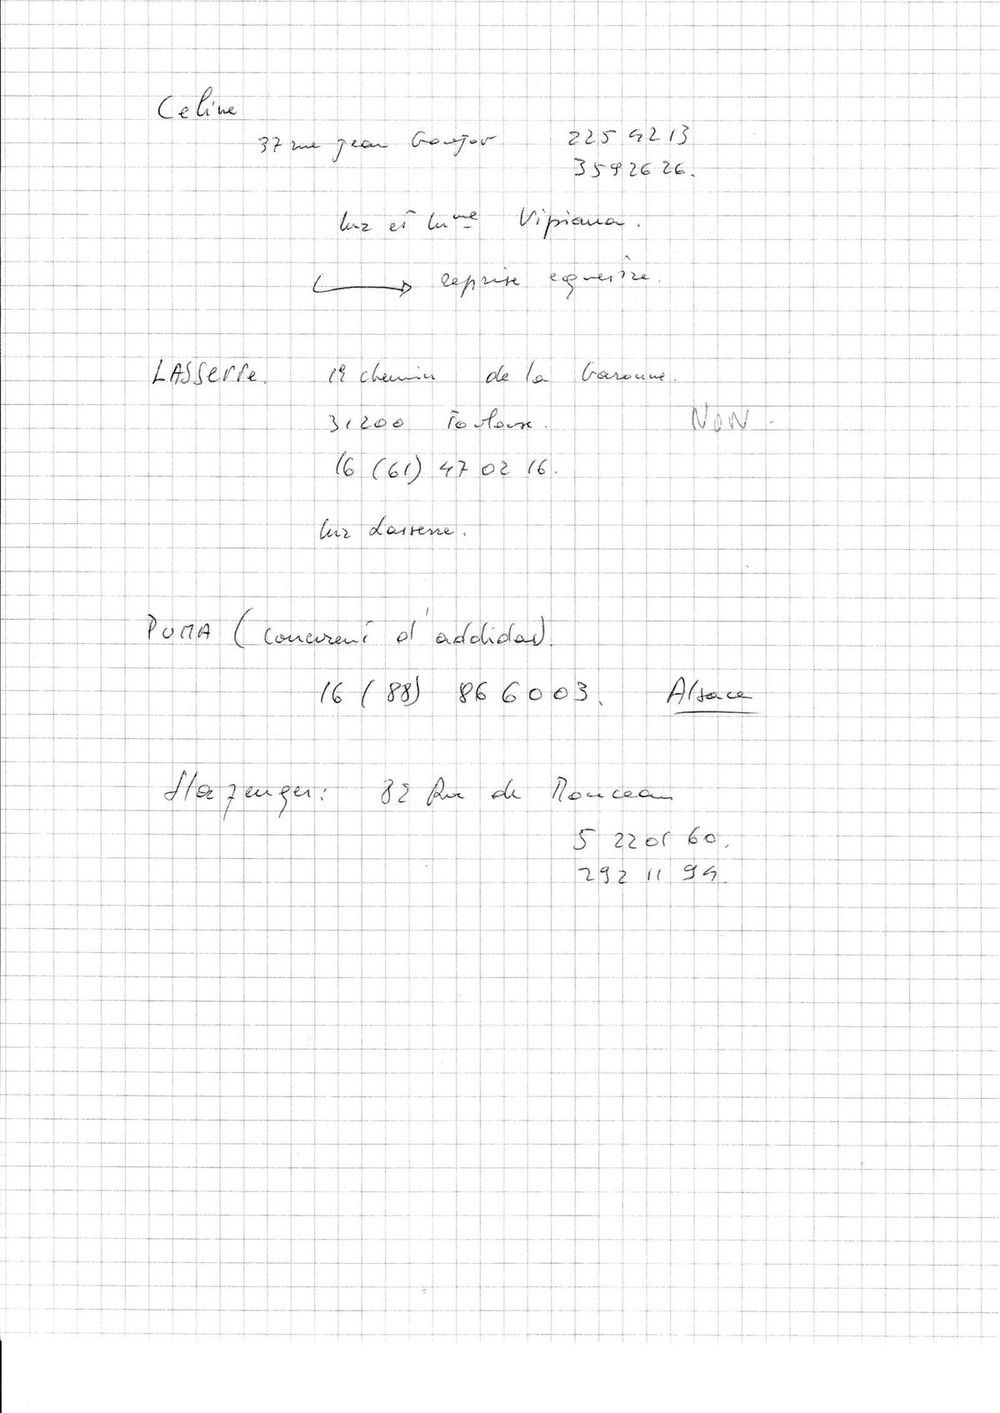 Celine
37 rue jean Goujon 225 92 13
359 26 26.
Mr et Mme Vipiana.
reprise equestre.
LASSerre. 19 chemin de la Garonne.
31200 Toulouse. NON
16 (61) 47 02 16.
Mr Lasserre.
PUMA (concurent d'addidas).
16 (88) 86 60 03. Alsace
Slazenger: 82 Rue de Monceau
5 22 01 60.
292 11 94.